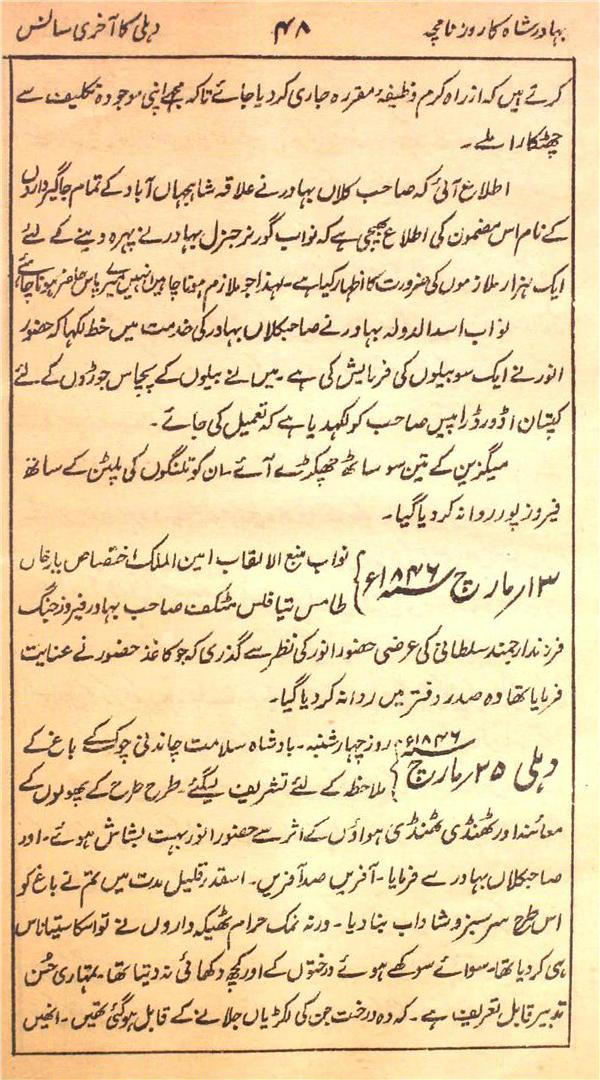 بہادر شاہ کا روزنامچہ ۴۸ دہلی کا آخری سانس
کرتے ہیں کہ از راہ کرم وظیفہ مقررہ جاری کر دیا جائے تاکہ مجھے اپنی موجودہ تکلیف سے
چھٹکارا ملے۔
اطلاع آئی کہ صاحب کلاں بہادر نے علاقہ شاہجہاں آباد کے تمام جاگیرداروں
کے نام اس مضمون کی اطلاع بھیجی ہے کہ نواب گورنر جنرل بہادر نے پہرہ دینے کے لئے
ایک ہزار ملازموں کی ضرورت کا اظہار کیا ہے۔ لہذا جو ملازم ہونا چاہیں انہیں میرے پاس حاضر ہونا چاہئے
نواب اسد الدولہ بہادر نے صاحبکلاں بہادر کی خدمت میں خط لکھا کہ حضور
انور نے ایک سو بیلوں کی فرمایش کی ہے۔ میں نے بیلوں کے پچاس جوڑوں کے لئے
کپتان اڈورڈ راہیس صاحب کو لکھدیا ہے کہ تعمیل کی جائے۔
میگزین کے تین سو ساٹھ چھکڑے آئے۔ ان کو تلنگوں کی پلٹن کے ساتھ
فیروز پور روانہ کر دیا گیا۔
۱۳ مارچ سنہ ۱۸۴۶ء } نواب منبع الالقاب امین الملک اختصاص یار خاں
طامس تیافلس مٹکف صاحب بہادر فیروز جنگ
فرزند ارجمند سلطانی کی عرضی حضور انور کی نظر سے گذری کہ جو کاغذ حضور نے عنایت
فرمایا تھا وہ صدر دفتر میں روانہ کر دیا گیا۔
دہلی ۲۵ مارچ سنہ ۱۸۴۶ء } روز چہار شنبہ۔ بادشاہ سلامت چاندنی چوک کے باغ کے
ملاحظہ کے لئے تشریف لیگئے۔ طرح طرح کے پھولوں کے
معائنہ اور ٹھنڈی ٹھنڈی ہواؤں کے اثر سے حضور انور بہت بشاش ہوئے۔ اور
صاحبکلاں بہادر سے فرمایا۔ آفریں صد آفریں۔ اسقدر قلیل مدت میں تم نے باغ کو
اس طرح سرسبز و شاداب بنا دیا۔ ورنہ نمک حرام ٹھیکہ داروں نے تو اسکا ستیاناس
ہی کر دیا تھا۔ سوائے سوکھے ہوئے درختوں کے اور کچھ دکھائی نہ دیتا تھا۔ تمہاری حسن
تدبیر قابل تعریف ہے۔ کہ وہ درخت جن کی لکڑیاں جلانے کے قابل ہو گئی تھیں۔ انھیں